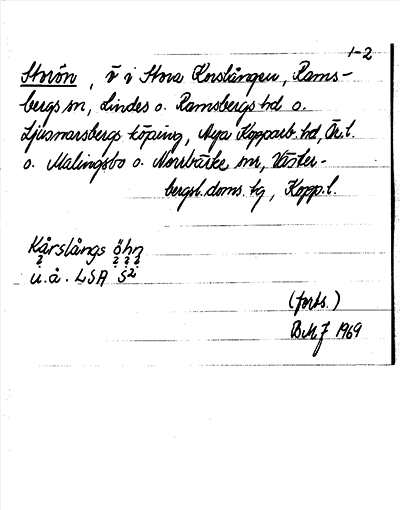 1-2
Storön, ö i Stora Korslången, Rams-
bergs sn, Lindes o. Ramsbergs hd o.
Ljusnarsbergs köping, Nya Kopparb. hd, Ör.l.
o. Malingsbo o. Norrbärke snr, Väster-
bergsl. doms. tg, Kopp.l.
Kårslångs öhn
? ? ? ?
u.å. LSA S2
(forts.)
BMJ 1969